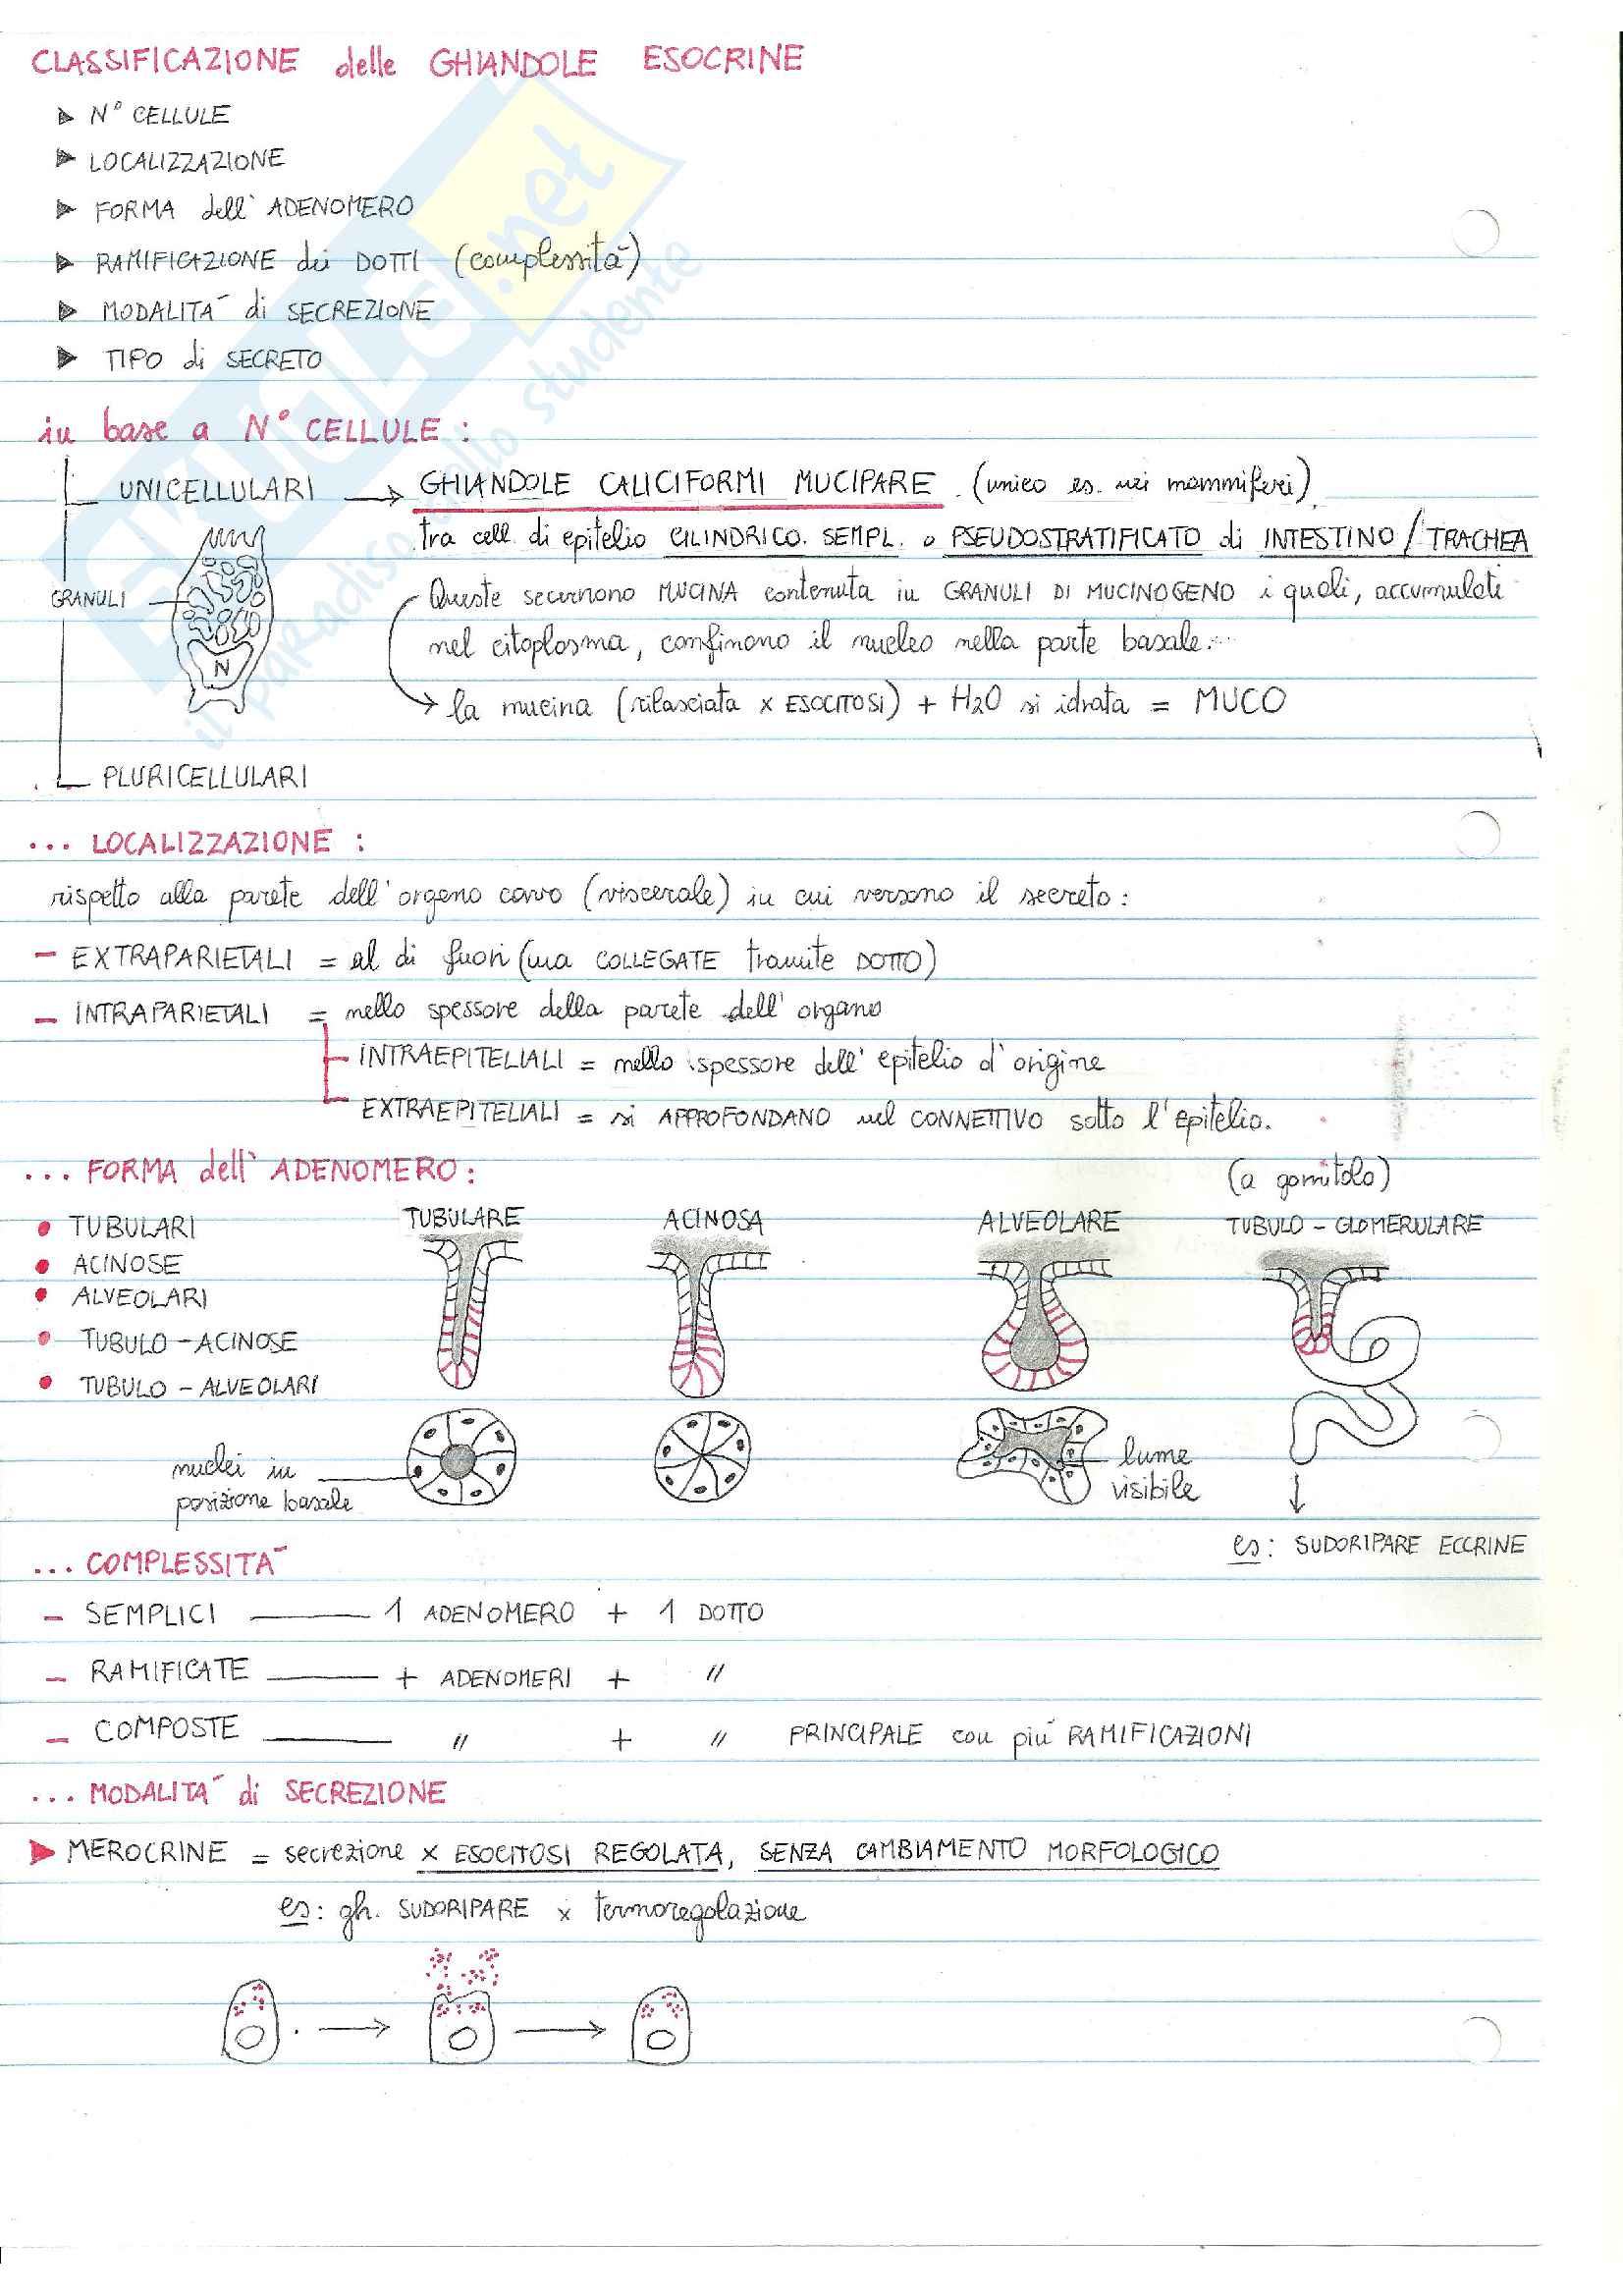 CLASSIFICAZIONE delle GHIANDOLE ESOCRINE
N° CELLULE
LOCALIZZAZIONE
FORMA dell' ADENOMERO
RAMIFICAZIONE dei DOTTI (complessità)
MODALITÀ di SECREZIONE
TIPO di SECRETO
in base a N° CELLULE :
UNICELLULARI → GHIANDOLE CALICIFORMI MUCIPARE (unico es. nei mammiferi)
tra cell. di epitelio CILINDRICO SEMPL. o PSEUDOSTRATIFICATO di INTESTINO / TRACHEA
GRANULI
Queste secernono MUCINA contenuta in GRANULI DI MUCINOGENO i quali, accumulati
nel citoplasma, confinano il nucleo nella parte basale...
N
→ la mucina (rilasciata x ESOCITOSI) + H2O si idrata = MUCO
PLURICELLULARI
... LOCALIZZAZIONE :
rispetto alla parete dell'organo cavo (viscerale) in cui versano il secreto :
- EXTRAPARIETALI = al di fuori (ma COLLEGATE tramite DOTTO)
- INTRAPARIETALI = nello spessore della parete dell' organo
INTRAEPITELIALI = nello spessore dell' epitelio d'origine
EXTRAEPITELIALI = si APPROFONDANO nel CONNETTIVO sotto l'Epitelio.
... FORMA dell' ADENOMERO :
(a gomitolo)
• TUBULARI
TUBULARE ACINOSA ALVEOLARE TUBULO - GLOMERULARE
• ACINOSE
• ALVEOLARI
• TUBULO - ACINOSE
• TUBULO - ALVEOLARI
nuclei in
posizione basale
lume
visibile
es: SUDORIPARE ECCRINE
... COMPLESSITÀ
- SEMPLICI —— 1 ADENOMERO + 1 DOTTO
- RAMIFICATE —— + ADENOMERI + "
- COMPOSTE —— " + " PRINCIPALE con più RAMIFICAZIONI
... MODALITÀ di SECREZIONE
MEROCRINE = secrezione x ESOCITOSI REGOLATA, SENZA CAMBIAMENTO MORFOLOGICO
es: gh. SUDORIPARE x termoregolazione
SKUOLA.net
il paradiso dello studente